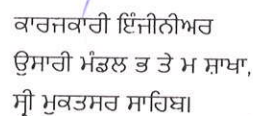 ਕਾਰਜਕਾਰੀ ਇੰਜੀਨੀਅਰ
ਉਸਾਰੀ ਮੰਡਲ ਭ ਤੇ ਮ ਸ਼ਾਖਾ,
ਸ੍ਰੀ ਮੁਕਤਸਰ ਸਾਹਿਬ।